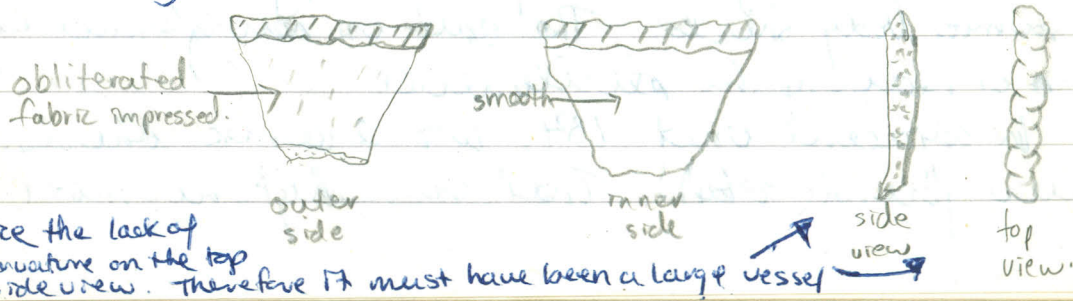 obliterated
fabric impressed.
smooth
outer
side
inner
side
side
view
top
view.
the lack of
on the top
view. Therefore it must have been a large vessel